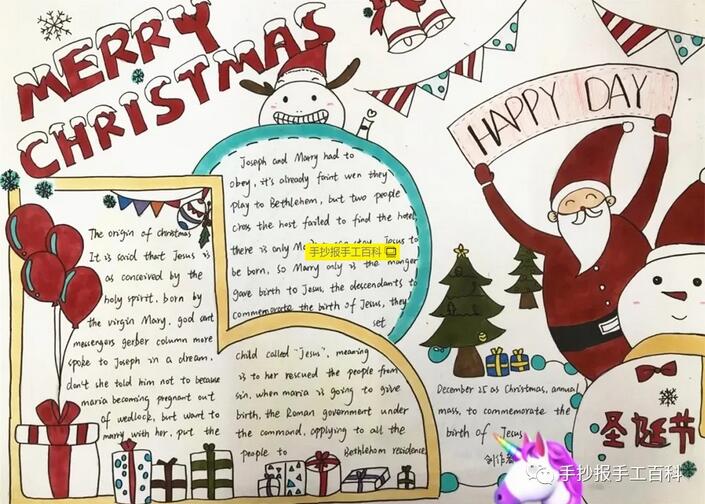 MERRY
CHRISTMAS
HAPPY DAY
The origin of christmas
It is said that Jesus is
as conceived by the
holy spirit, born by
the virgin Mary, god ant
messengers gerber column more
spoke to Joseph in a dream.
don't she told him not to because
maria becoming pregnant out
of wedlock, but want to
marry with her, put the
Joseph and Marry had to
obey, it's already faint wen they
play to Bethlehem, but two people
cross the host failed to find the hotel,
there is only stay. Jesus to
be born, so Marry only is the manger
gave birth to Jesus, the descendants to
commemorate the birth of Jesus, they
set
child called "Jesus", meaning
is to her rescued the people from
sin, when maria is going to give
birth, the Roman government under
the command, applying to all the
people to Bethlehom residence
December 25 as Christmas, annual
mass, to commemorate the
birth of Jesus
圣诞节
手抄报手工百科
手抄报手工百科